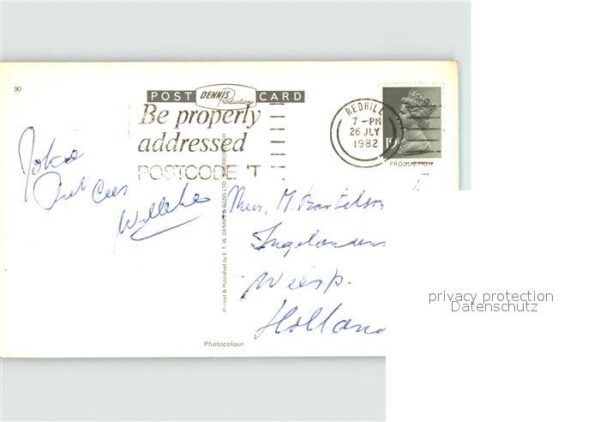 90
POST DENNIS Productions CARD
Be properly
addressed
POSTCODE IT
REDHILL
7-PM
26 JLY
1982
19
PRODUCTION
Willeke
M. Bartelson
Weesp.
Holland
Printed & Published by E. T. W. DENNIS & SONS LTD SCARBOROUGH
Photocolour
privacy protection
Datenschutz